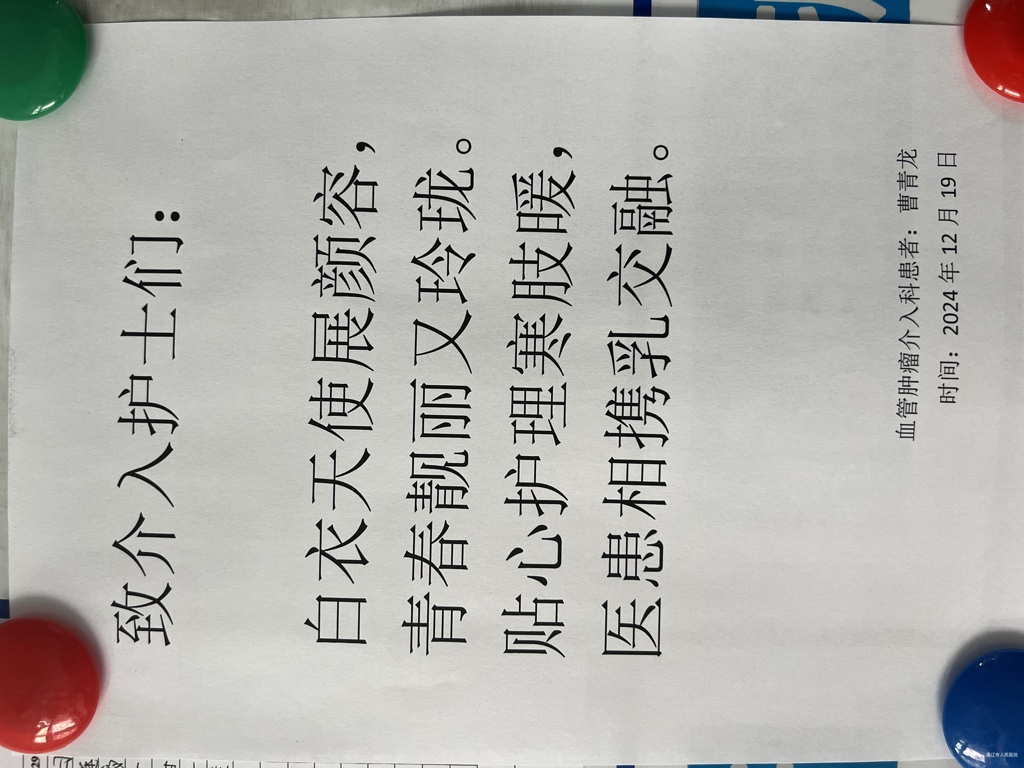 致介入护士们：
白衣天使展颜容，
青春靓丽又玲珑。
贴心护理寒肢暖，
医患相携乳交融。
血管肿瘤介入科患者：曹青龙
时间：2024年12月19日
通辽市人民医院